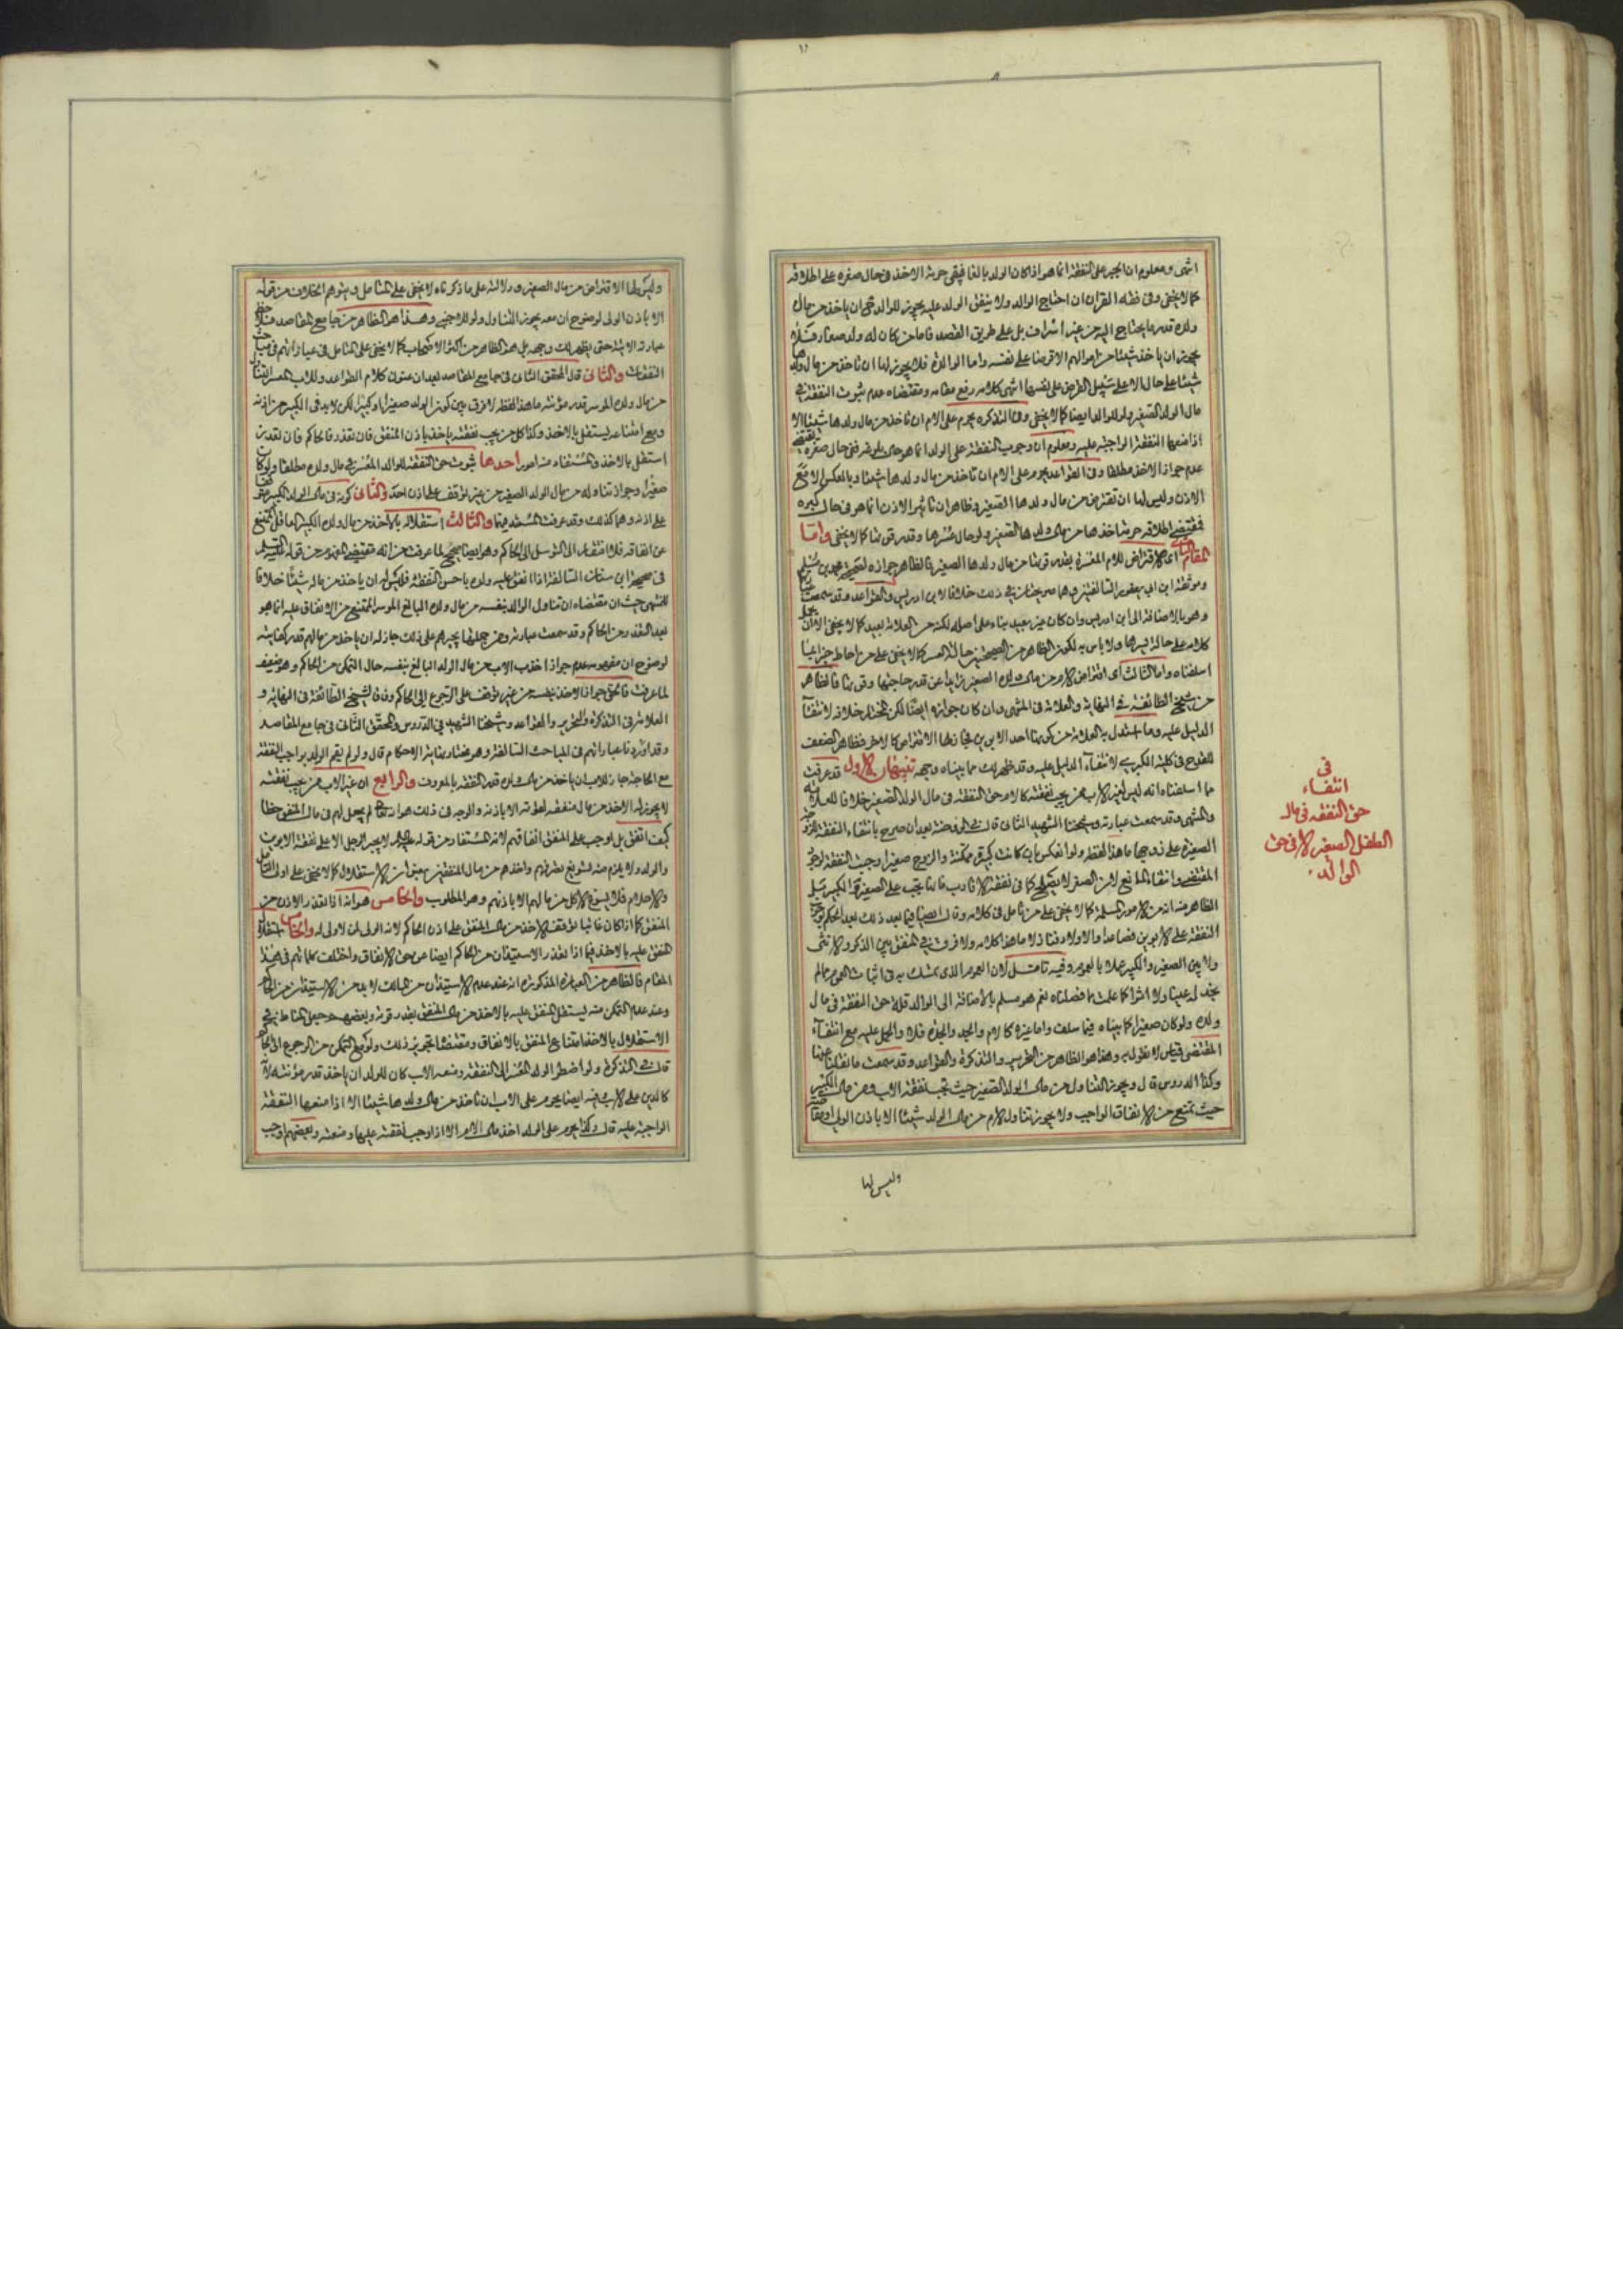 انتهى ومعلوم ان الجبر على النفقة انما هو اذا كان الولد بالغا فيبقى حرمة الاخذ فى حال صغره على اطلاقه
كما لا يخفى وفى فقه القران ان احتاج الوالد ولا ينفق الولد عليه يجوز للوالد ان ياخذ من مال
ولده قدر ما يحتاج اليه من غير اسراف بل على طريق القصد فاما من كان له ولد صغار فلا
يجوز ان ياخذ شيئا من اموالهم الا قرضا على نفسه واما الوالدة فلا يجوز لها ان تاخذ من مال ولدها
شيئا على حال الا على سبيل القرض على نفسها انتهى كلامه رفع مقامه ومقتضاه عدم ثبوت النفقة فى
مال الولد الصغير ولو للوالد ايضا كما لا يخفى وفى التذكرة يحرم على الام ان تاخذ من مال ولدها شيئا الا
اذا منعها النفقة الواجبة عليه ومعلوم ان وجوب النفقة على الولد انما هو حال ففى حال صغره يقتضى
عدم جواز الاخذ مطلقا وفى القواعد يحرم على الام ان تاخذ من مال ولدها شيئا وبالعكس الا مع
الاذن وليس لها ان تقترض من مال ولدها الصغير فظاهر ان تاثير الاذن انما هو فى حال كبره
فمقتضى اطلاقه حرمة اخذها من مال ولدها الصغير ولو حال عسرها وقدر قوتها كما لا يخفى واما
المقام الثانى اى الاقتراض للام المعسرة بقدر قوتها من مال ولدها الصغير فالظاهر جوازه لصحيحة محمد بن مسلم
وموثقة ابن ابى يعفور السالفتين وهما صريحتان فى ذلك خلافا لابن ادريس والقواعد وقد سمعت
وهو بالاضافة الى ابن ادريس وان كان غير بعيد بناء على اصله لكنه من العلامة بعيد كما لا يخفى الا ان
كلامه على حالة يسرها ولا باس به لكون الظاهر من الصحيحتين حالة العسر كما لا يخفى على من احاط خبرا بما
اسلفناه واما الثالث اى اقتراض الام من مال ولده الصغير زايدا عن قدر حاجتها وقوتها فالظاهر
من شيخ الطائفة فى النهاية والعلامة فى المنتهى وان كان جوازه ايضا لكن المختار خلافه لانتفاء
الدليل عليه وما استدل به العلامة من كونها احد الابوين فجاز لها الاقتراض كالاخر فظاهر الضعف
للقدح فى كلية الكبرى لانتفاء الدليل عليه وقد ظهر لك مما بيناه وجهه تنبيهان الاول قد عرفت
مما اسلفناه انه ليس لغير الاب ممن يجب نفقته كالام حق النفقة فى مال الولد الصغير خلافا للعلامة
والمنتهى وقد سمعت عبارته وشيخنا الشهيد الثانى قال فى الروضة بعد ان صرح بانتفاء النفقة للزوجة
الصغيرة على زوجها ما هذا لفظه ولو انعكس بان كانت كبيرة ممكنة والزوج صغيرا وجبت النفقة لوجود
المقتضى وانتفاء المانع لان الصغر لا يصلح كما فى نفقة الاقارب فانها تجب على الصغير والكبير بل
الظاهر منه انه من الامور المسلمة كما لا يخفى على من تامل فى كلامه وقال ايضا فيما بعد ذلك بعد الحكم بوجوب
النفقة على الابوين فصاعدا والاولاد فنازلا ما هذا كلامه ولا فرق فى المنفق بين الذكر والانثى
ولا بين الصغير والكبير عملا بالعموم وفيه تامل لان العموم الذى تمسك به فى اثبات العموم مما لم
نجد له عينا ولا اثرا كما علمت مما فصلناه نعم هو مسلم بالاضافة الى الوالد فله حق النفقة فى مال
ولده ولو كان صغيرا كما بيناه فيما سلف واما غيره كالام والجد والجدة فلا والحمل عليه مع انتفاء
المقتضى قياس لا نقول به وهذا هو الظاهر من التحرير والتذكرة والقواعد وقد سمعت ما نقلنا عنها
وكذا الدروس قال ويجوز التناول من مال الولد الصغير حيث تجب نفقة الاب ومن مال الكبير
حيث يمتنع من الانفاق الواجب ولا يجوز تناول الام من مال الولد شيئا الا باذن الولى او مقاصة
وليس لها
فى
انتفاء
حق النفقه فى مال
الطفل الصغير الا فى حق
الوالد
وليس لها الاقتراض من مال الصغير ودلالته على ما ذكرناه لا يخفى على المتامل وتوهم الخلاف من قوله
الا باذن الولى لوضوح ان معه يجوز التناول ولو للاجنبى وهذا هو الظاهر من جامع المقاصد فلاحظ
عبارته الاتية حتى يظهر لك وجهه بل هو الظاهر من اكثر الاصحاب كما لا يخفى على المتامل فى عباراتهم فى مباحث
النفقات والثانى قال المحقق الثانى فى جامع المقاصد بعد ان عنون كلام القواعد وللاب المعسر التناول
من مال ولده الموسر قدر مؤنته ما هذا لفظه لا فرق بين كون الولد صغيرا او كبيرا لكن لا بد فى الكبير من اذنه
ومع امتناعه يستقل بالاخذ وكذا كل من يجب نفقته ياخذ باذن المنفق فان تعذر فالحاكم فان تعذر
استقل بالاخذ والمستفاد منه امور احدها ثبوت حق النفقة للوالد المعسر فى مال ولده مطلقا ولو كان
صغيرا وجواز تناوله من مال الولد الصغير من غير توقف على اذن احد والثانى كونه فى مال الولد الكبير موقوفا
على اذنه وهما كذلك وقد عرفت المستند فيهما والثالث استقلاله بالاخذ من مال ولده الكبير العاقل الممتنع
عن انفاقه فلا افتقار الى التوسل الى الحاكم وهو ايضا صحيح لما عرفت من انه مقتضى المفهوم من قوله عليه السلام
فى صحيحة ابن سنان السالفة اذا انفق عليه ولده باحسن النفقة فليس له ان ياخذ من ماله شيئا خلافا
للمنتهى حيث ان مقتضاه ان تناول الوالد بنفسه من مال ولده البالغ الموسر الممتنع من الانفاق عليه انما هو
بعد التعذر من الحاكم وقد سمعت عبارته ومن جملتها يجبرهم على ذلك جاز له ان ياخذ من مالهم قدر كفايته
لوضوح ان مفهومه عدم جواز اخذ الاب من مال الولد البالغ بنفسه حال التمكن من الحاكم وهو ضعيف
لما عرفت فالحق جواز الاخذ بنفسه من غير توقف على الرجوع الى الحاكم وفاقا لشيخ الطائفة فى النهاية و
العلامة فى التذكرة والتحرير والقواعد وشيخنا الشهيد فى الدروس والمحقق الثانى فى جامع المقاصد
وقد اوردنا عباراتهم فى المباحث السالفة وهو مختار نهاية الاحكام قال ولو لم يقم الولد بواجب النفقة
مع الحاجة جاز للاب ان ياخذ من مال ولده قدر النفقة بالمعروف والرابع ان غير الاب ممن يجب نفقته
لا يجوز له الاخذ من مال منفقه لقوته الا باذنه والوجه فى ذلك هو انه تعالى لم يجعل لهم فى مال المنفق حظا
كيف اتفق بل اوجب على المنفق انفاقهم لانه المستفاد من قوله عليه السلام لا يجبر الرجل الا على نفقة الابوين
والولد ولا يلزم منه تسويغ تصرفهم واخذهم من مال المنفقين بعنوان الاستقلال كما لا يخفى على اولى النهى
والاحلام فلا يسوغ الاكل من مالهم الا باذنهم وهو المطلوب والخامس هو انه اذا تعذر الاذن من
المنفق كما اذا كان غائبا توقف الاخذ من مال المنفق على اذن الحاكم لانه الولى لمن لا ولى له والخامس استقلال
المنفق عليه بالاخذ فيما اذا تعذر الاستيذان من الحاكم ايضا عن حق الانفاق واختلفت كلماتهم فى هذا
المقام فالظاهر من العبارة المذكورة انه عند عدم الاستيذان من المالك لا بد من الاستيذان من الحاكم
وعند عدم التمكن منه يستقل المنفق عليه بالاخذ من مال المنفق بقدر قوته وبعضهم جعل المناط فى
الاستقلال بالاخذ امتناع المنفق بالانفاق ومقتضاه تجويز ذلك ولو مع التمكن من الرجوع الى الحاكم
قال فى التذكرة ولو اضطر الولد المعسر الى النفقة ومنعه الاب كان للولد ان ياخذ قدر مؤنته لانه
كالدين على الاب فيه ايضا يحرم على الاب ان تاخذ من مال ولدها شيئا الا اذا منعها النفقة
الواجبة عليه قال وكذا يحرم على الولد اخذ مال الام الا اذا وجب نفقته عليها ومنعته وبعضهم اوجب